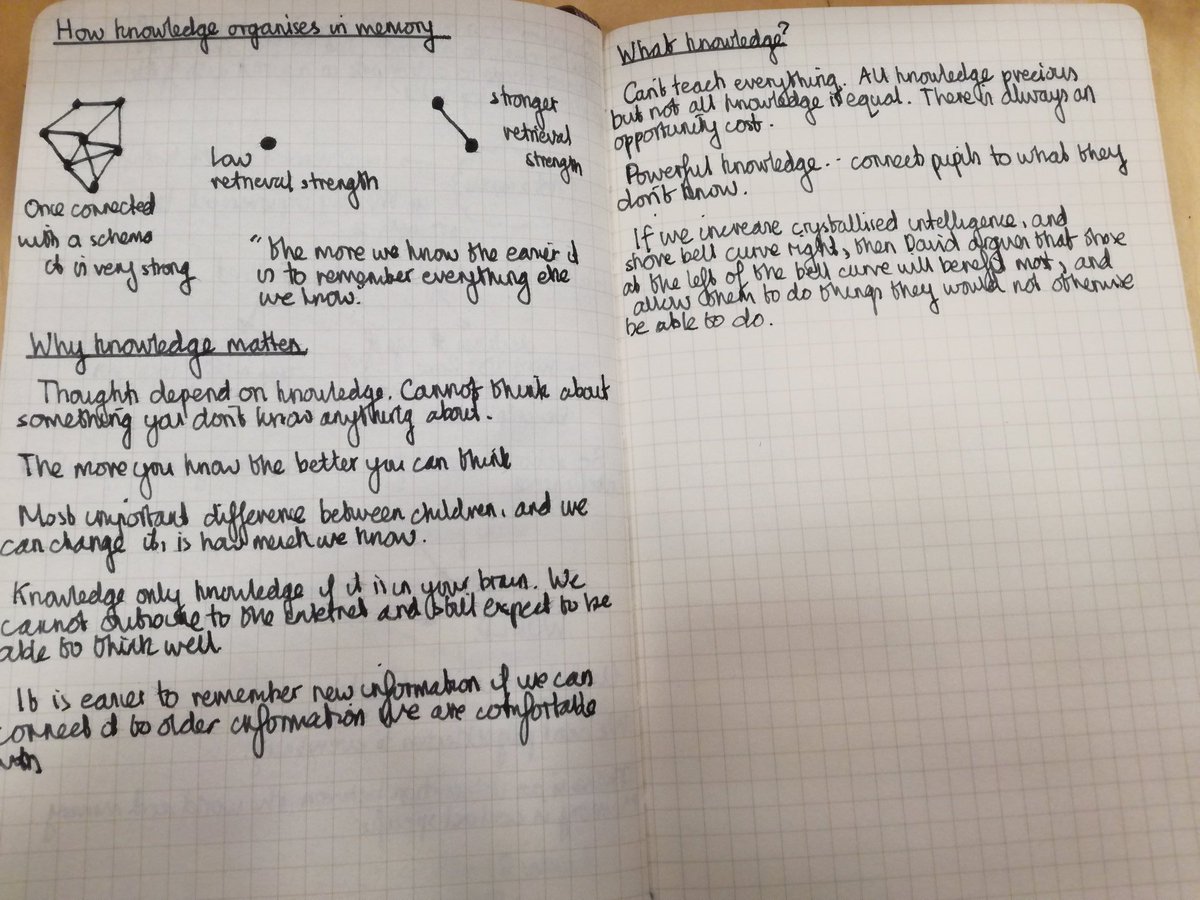 How knowledge organises in memory
Once connected
with a schema
it is very strong
Low
retrieval strength
stronger
retrieval
strength
"the more we know the easier it
is to remember everything else
we know.
Why knowledge matters
Thoughts depend on knowledge. Cannot think about
something you don't know anything about.
The more you know the better you can think
Most important difference between children, and we
can change it, is how much we know.
Knowledge only knowledge if it is in your brain. We
cannot outsource to the internet and still expect to be
able to think well.
It is easier to remember new information if we can
connect it to older information we are comfortable
with
What knowledge?
Can't teach everything. All knowledge precious
but not all knowledge is equal. There is always an
opportunity cost.
Powerful knowledge... connect pupils to what they
don't know.
If we increase crystallised intelligence, and
shove bell curve right, then David argues that those
at the left of the bell curve will benefit most, and
allow them to do things they would not otherwise
be able to do.